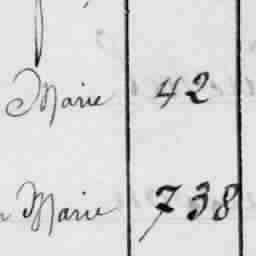 Marie 42
Marie 738